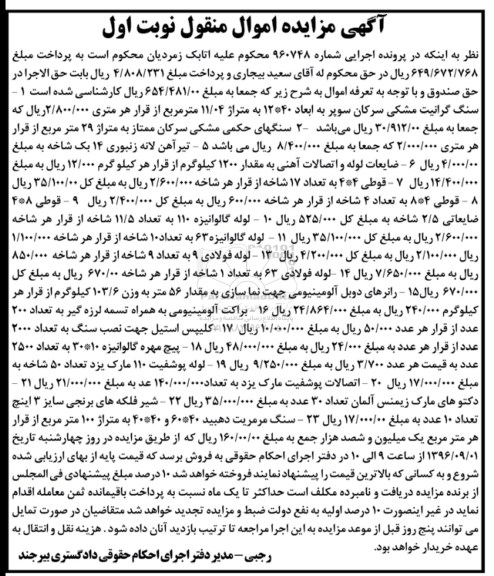 آگهی مزایده اموال منقول نوبت اول
نظر به اینکه در پرونده اجرایی شماره ۹۶۰۷۴۸ محکوم علیه اتابک زمردیان محکوم است به پرداخت مبلغ
۶۴۹/۶۷۲/۷۶۸ ریال در حق محکوم له آقای سعید بیجاری و پرداخت مبلغ ۴/۸۰۸/۲۳۱ ریال بابت حق الاجرا در
حق صندوق و با توجه به تعرفه اموال به شرح زیر که جمعا به مبلغ ۶۵۴/۴۸۱/۰۰ ریال کارشناسی شده است ۱ -
سنگ گرانیت مشکی سرکان سوپر به ابعاد ۴۰*۱۲ به متراژ ۱۱/۰۴ مترمربع از قرار هر متری ۲/۸۰۰/۰۰۰ریال که
جمعا به مبلغ ۳۰/۹۱۲/۰۰ ریال می‌باشد -۲ سنگهای حکمی مشکی سرکان ممتاز به متراژ ۲۹ متر مربع از قرار
هر متری ۲/۰۰۰/۰۰ که جمعا به مبلغ ۸/۴۰۰/۰۰۰ ریال می باشد ۵ - تیرآهن لانه زنبوری ۱۴ یک شاخه به مبلغ
۴/۰۰۰/۰۰ ریال ۶ - ضایعات لوله و اتصالات آهنی به مقدار ۱۲۰۰ کیلوگرم از قرار هر کیلو گرم ۱۲/۰۰۰ ریال به مبلغ
۱۴/۴۰۰/۰۰ ریال ۷ - قوطی ۴*۴ به تعداد ۱۷ شاخه از قرار هر شاخه ۲/۶۰۰/۰۰۰ ریال به مبلغ کل ۳۵/۱۰۰/۰۰ ریال
۸ - قوطی ۴*۸ به تعداد ۴ شاخه از قرار هر شاخه ۶۰۰/۰۰۰ ریال به مبلغ کل ۲/۴۰۰/۰۰۰ ریال ۹ - قوطی ۸*۴
ضایعاتی ۲/۵ شاخه به مبلغ کل ۵۲۵/۰۰۰ ریال ۱۰ - لوله گالوانیزه ۱۱۰ به تعداد ۱۱/۵ شاخه از قرار هر شاخه
۲/۶۰۰/۰۰ ریال به مبلغ کل ۳۵/۱۰۰/۰۰ ریال ۱۱ - لوله گالوانیزه۶۳ به تعداد۱۰ شاخه از قرار هر شاخه ۱/۱۰۰/۰۰
ریال ۲/۱۰۰/۰۰ ریال به مبلغ کل ۴/۲۰۰/۰۰ ریال ۱۳ - لوله فولادی ۹ به تعداد ۹ شاخه از قرار هر شاخه ۸۵۰/۰۰۰
ریال به مبلغ ۷/۶۵۰/۰۰۰ ریال ۱۴ -لوله فولادی ۶۳ به تعداد ۱ شاخه از قرار هر شاخه ۶۷۰/۰۰ ریال به مبلغ کل
۶۷۰/۰۰۰ ریال۱۵ - رانرهای دوبل آلومینیومی جهت نما سازی به مقدار ۵۶ متر به وزن ۱۰۳/۶ کیلوگرم از قرار هر
کیلوگرم ۲۴۰/۰۰۰ ریال به مبلغ ۲۴/۸۶۴/۰۰۰ ریال ۱۶ - براکت آلومینیومی به همراه تسمه لرزه گیر به تعداد ۲۰۰
عدد از قرار هر عدد ۵۰/۰۰۰ ریال به مبلغ ۱۰/۰۰/۰۰۰ ریال ۱۷- کلیپس استیل جهت نصب سنگ به تعداد ۲۰۰۰
عدد از قرار هر عدد به مبلغ ۲۴/۰۰۰ ریال به مبلغ ۴۸/۰۰۰/۰۰۰ ریال ۱۸ - پیچ مهره گالوانیزه ۱۰*۳۰ به تعداد ۲۵۰۰
عدد به قیمت هر عدد ۳/۷۰۰ ریال به مبلغ ۹/۲۵۰/۰۰۰ ریال ۱۹ - لوله پوشفیت ۱۱۰ مارک یزد تعداد ۵۰ شاخه به
مبلغ ۱۷/۰۰۰/۰۰۰ ریال ۲۰ - اتصالات پوشفیت مارک یزد به تعداد۱۴۰/۰۰۰/۰۰۰ عد به مبلغ ۲۱/۰۰۰/۰۰۰ ریال ۲۱ -
دکتو های مارک زیمنس آلمان تعداد ۳۰ عدد به مبلغ ۳۵/۰۰۰/۰۰۰ ریال ۲۲ - شیر فلکه های برنجی سایز ۳ اینچ
تعداد ۱۰ عدد به مبلغ ۱۷/۰۰۰/۰۰ ریال ۲۳ - سنگ مرمریت دهبید ۴۰*۶۰ و ۴۰*۴۰ به متراژ ۱۰۰ متر مربع از قرار
هر متر مربع یک میلیون و شصد هزار جمع به مبلغ ۱۶۰/۰۰/۰۰ ریال که از طریق مزایده در روز چهارشنبه تاریخ
۱۳۹۶/۰۹/۰۱ از ساعت ۹ الی ۱۰ در دفتر اجرای احکام حقوقی به فروش برسد که قیمت پایه از بهای ارزیابی شده
شروع و به کسانی که بالاترین قیمت را پیشنهاد نمایند فروخته خواهد شد ۱۰ درصد مبلغ پیشنهادی فی المجلس
از برنده مزایده دریافت و نامبرده مکلف است حداکثر تا یک ماه نسبت به پرداخت باقیمانده ثمن معامله اقدام
نماید در غیر اینصورت ۱۰ درصد اولیه به نفع دولت ضبط و مزایده تجدید خواهد شد متقاضیان در صورت تمایل
می توانند پنج روز قبل از موعد مزایده به این اجرا مراجعه تا ترتیب بازدید آنان داده شود . هزینه نقل و انتقال به
عهده خریدار خواهد بود.
رجبی - مدیر دفتر اجرای احکام حقوقی دادگستری بیرجند